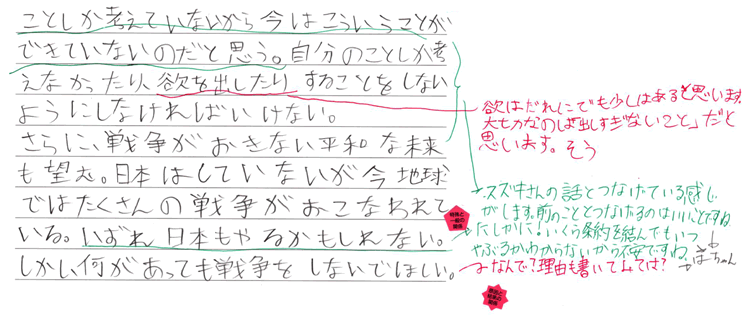 ことしか考えていないから今はこういうことが
できていないのだと思う。自分のことしか考
えなかったり、欲を出したりすることをしない
ようにしなければいけない。
さらに、戦争がおきない平和な未来
も望む。日本はしていないが今地球
ではたくさんの戦争がおこなわれて
いる。いずれ日本もやるかもしれない。
しかし何があっても戦争をしないでほしい。
欲はだれにでも少しはあると思います。
大切なのは「出しすぎないこと」だと
思います。そう
スズキさんの話とつなげている感じ
がします。前のこととつなげるのはいいことですね
たしかに!いくら条約を結んでもいつ
やぶるかわからないから不安ですね。
ばーちゃん
なんで?理由も書いてみては?